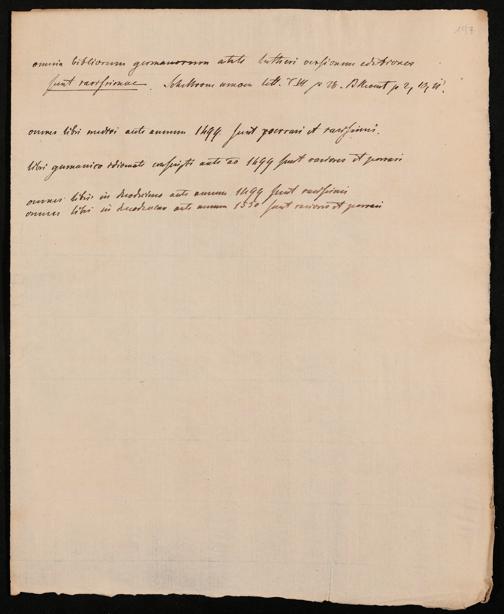 197
omnia bibliorum germanorum ante lutheri versionem editiones
sunt rarissimae. Schelhorn amoen litt. T III p 2, 12, 21.
omnes libri medici ante annum 1499 sunt rarissimi.
libri germanico idiomate conscripti ante ao 1499 sunt rariores et
omnes libri in duodecimo ante annum 1499 sunt rarissimi
omnes libri in ante annum 1550 sunt rariores et